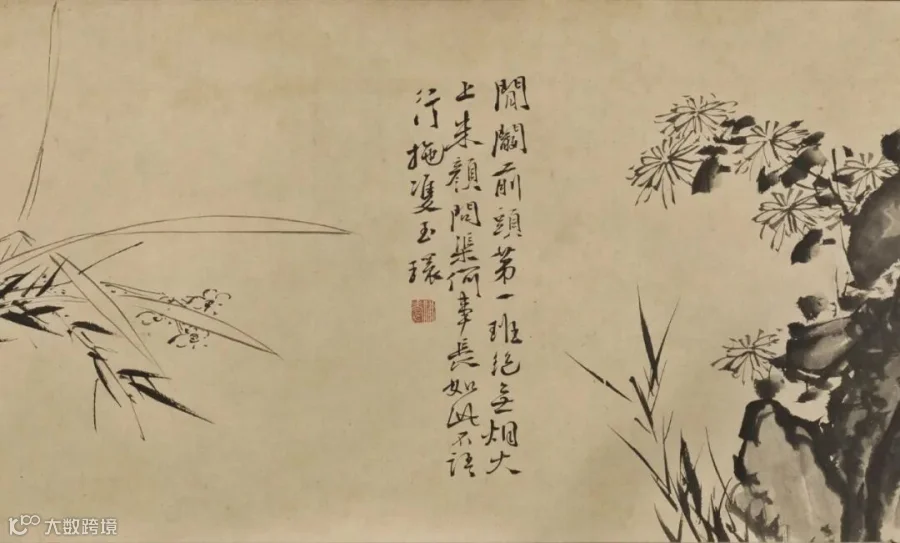 閶闔前頭第一班絕無烟火
上朱顏問渠何事長如此不語
行拖雙玉環
大数跨境